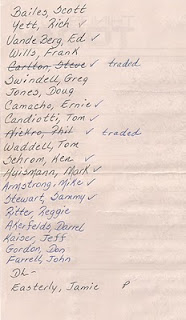 Bailes, Scott
Yett, Rich ✓
Vande Berg, Ed ✓
Wills, Frank
Carlton, Steve ✓ traded
Swindell, Greg
Jones, Doug
Camacho, Ernie ✓
Candiotti, Tom ✓
Niekro, Phil ✓ traded
Waddell, Tom
Schrom, Ken ✓
Huismann, Mark ✓
Armstrong, Mike ✓
Stewart, Sammy ✓
Ritter, Reggie
Akerfelds, Darrel
Kaiser, Jeff
Gordon, Don
Farrell, John
DL -
Easterly, Jamie P